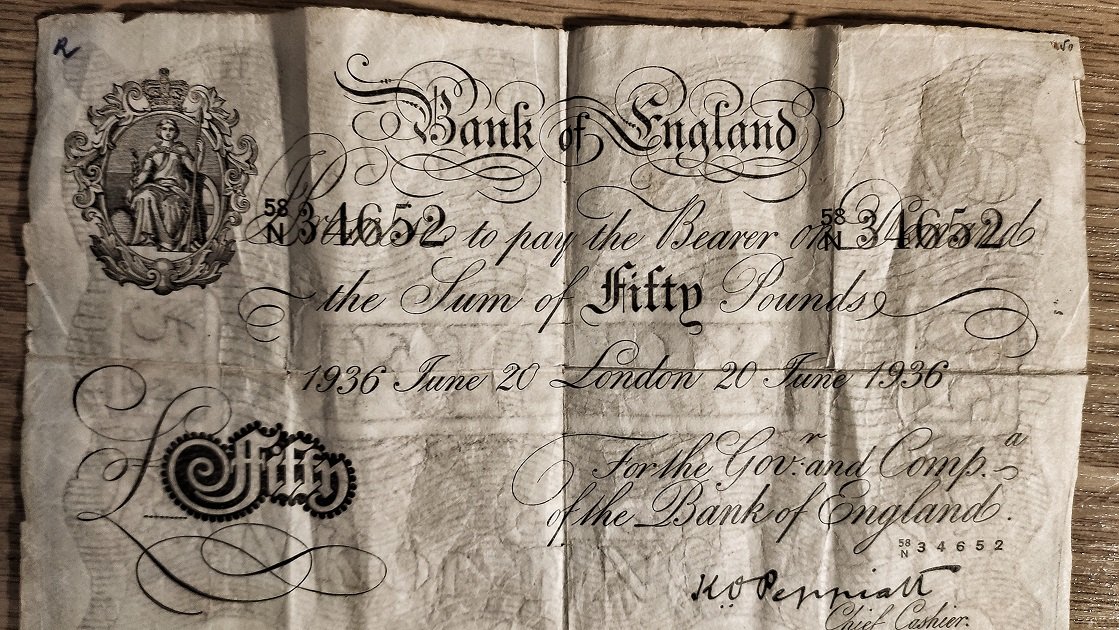 R
Bank of England
58
N 34652 to pay the Bearer on 58
N 34652
the Sum of Fifty Pounds
1936 June 20 London 20 June 1936
£ Fifty
For the Govr. and Compa.
of the Bank of England.
58
N 34652
K.O. Peppiatt
Chief Cashier.